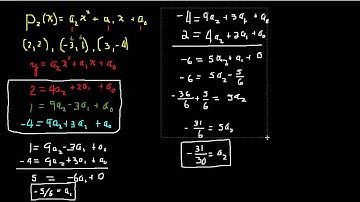 P₂(x) = a₂x² + a₁x + a₀
(2,2), (-3,1), (3,-4)
y = a₂x² + a₁x + a₀
2 = 4a₂ + 2a₁ + a₀
1 = 9a₂ - 3a₁ + a₀
-4 = 9a₂ + 3a₁ + a₀
1 = 9a₂ - 3a₁ + a₀
-4 = 9a₂ + 3a₁ + a₀
5 = -6a₁ + 0
-5/6 = a₁
-4 = 9a₂ + 3a₁ + a₀
2 = 4a₂ + 2a₁ + a₀
-6 = 5a₂ + a₁ + 0
-6 = 5a₂ - 5/6
-36/6 + 5/6 = 5a₂
-31/6 = 5a₂
-31/30 = a₂